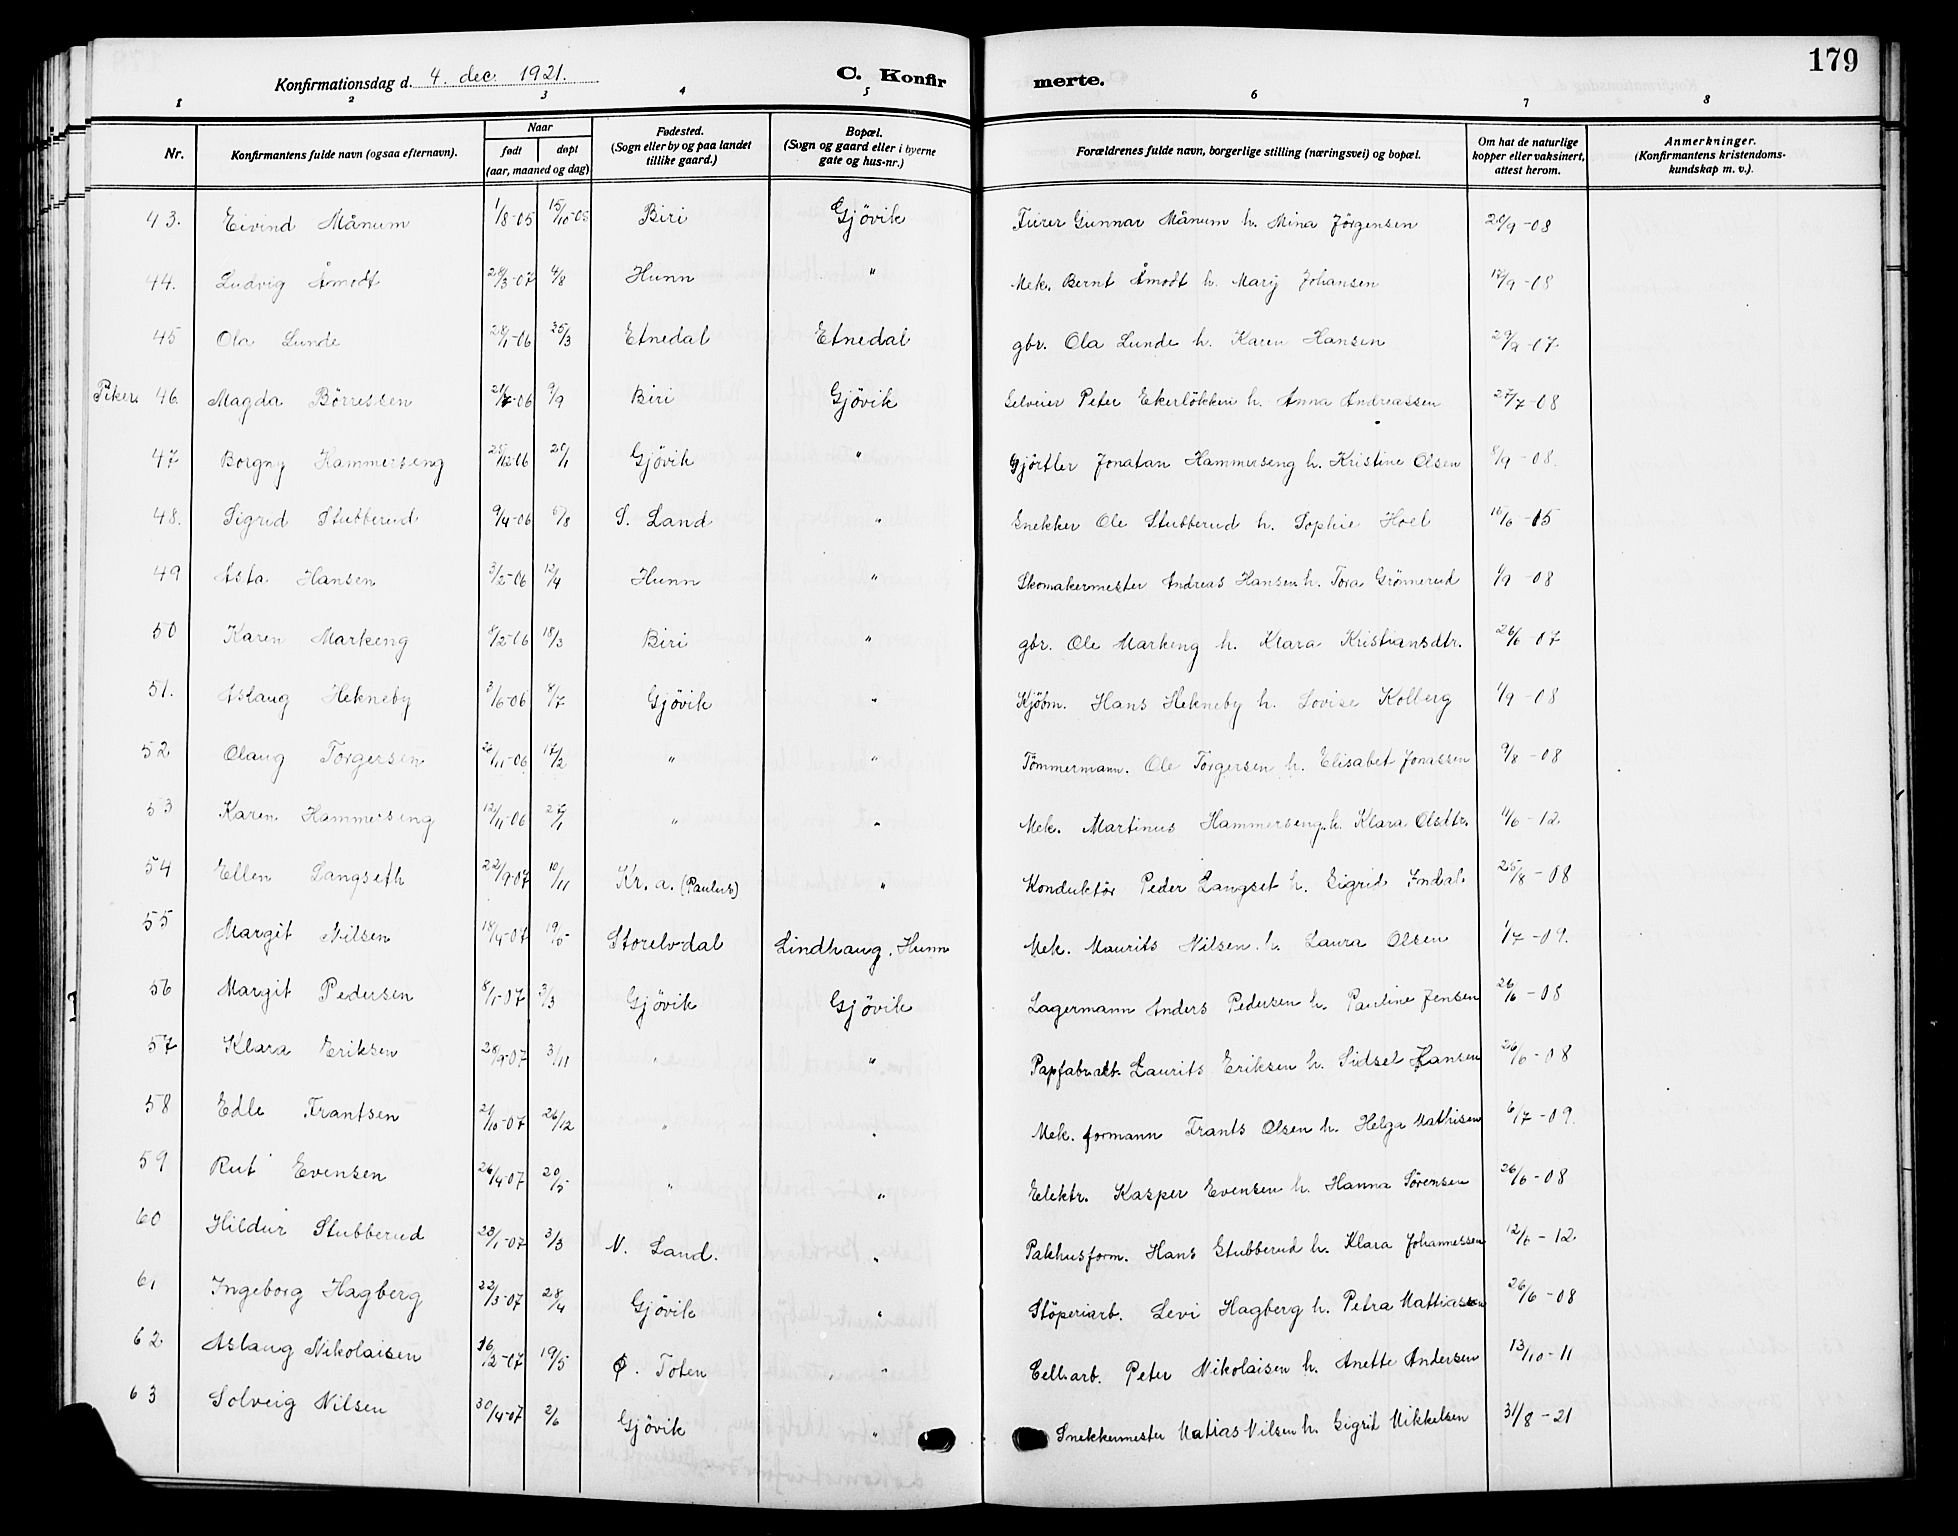 179
Konfirmationsdag d. 4. dec. 1921.
C. Konfirmerte.
1 2 3 4 5 6 7 8
Nr. Konfirmantens fulde navn (ogsaa efternavn). Naar født døpt (aar, maaned og dag) Fødested. (Sogn eller by og paa landet tillike gaard.) Bopæl. (Sogn og gaard eller i byerne gate og hus-nr.) Forældrenes fulde navn, borgerlige stilling (næringsvei) og bopæl. Om hat de naturlige kopper eller vaksinert, attest herom. Anmerkninger. (Konfirmantens kristendoms-kundskap m. v.).
43. Eivind Månum 1/8-05 15/10-05 Biri Gjövik Fuirer Gunnar Månum h. Mina Jörgensen /9-08
44. Ludvig Åmodt /3-07 4/8 Hunn " Mek. Bernt Åmodt h. Mary Johansen 17/9-08
45 Ola Lunde 28/1-06 25/3 Etnedal Etnedal gbr. Ola Lunde h. Karen Hansen 29/9-07.
Piker 46. Magda Börressen -06 9/9 Biri Gjövik Selveier Peter Ekerlökken h. Anna Andreassen 27/7-08
47 Borgny Hammerseng /12-06 20/1 Gjövik " Gjörtler Jonatan Hammerseng h. Kristine Olsen 8/9-08.
48. Sigrid Stubberud 9/4-06 /8 S. Land " Snekker Ole Stubberud h. Sophie Hoel 16/6-15
49 Asta Hansen 3/2-06 12/4 Hunn " Skomakermester Andreas Hansen h. Tora Grönnerud 1/9-08
50 Karen Markeng 8/2-06 18/3 Biri " gbr. Ole Markeng h. Klara Kristiansdtr. 26/6-07
51. Aslaug Hekneby 3/6-06 8/7 Gjövik " Kjöbm. Hans Hekneby h. Lovise Kolberg 1/9-08
52 Olaug Torgersen /11-06 17/2 " " Tömmermann. Ole Torgersen h. Elisabet Jonassen 9/8-08
53 Karen Hammerseng 12/11-06 27/1 " " Mek. Martinus Hammerseng. h. Klara Olsdtr. 4/6-12.
54 Ellen Langseth 22/9-07 10/11 Kr.a. (Paulus) " Konduktör Peder Langset h. Sigrid Indal. 25/8-08
55 Margit Nilsen 18/4-07 19/5 Storelvdal Lindhaug. Hunn Mek. Maurits Nilsen. h. Laura Olsen 1/7-09.
56 Margit Pedersen 8/1-07 3/3 Gjövik Gjövik Lagermann Anders Pedersen h. Pauline Jensen 26/6-08
57 Klara Eriksen 28/9-07 3/11 " " Papfabr.arb. Laurits Eriksen h. Sidsel Hansen 26/6-08
58 Edle Frantsen 21/10-07 26/12 " " Mek. formann Frants Olsen h. Helga Mathisen 6/7-09.
59 Rut Evensen 26/4-07 20/5 " " Elektr. Kasper Evensen h. Hanna Sörensen 26/6-08
60 Hildur Stubberud 23/1-07 3/3 N. Land. " Pakhusform. Hans Stubberud h. Klara Johannessen 12/6-12.
61 Ingeborg Hagberg 22/3-07 28/4 Gjövik " Stöperiarb. Levi Hagberg h. Petra Mattiassen 26/6-08
62. Aslaug Nikolaisen 16/2-07 19/5 Ø. Toten " Cell.arb. Peter Nikolaisen h. Anette Andersen 13/10-11
63 Solveig Nilsen 30/4-07 2/6 Gjövik " Snekkermester Matias Nilsen h. Sigrid Mikkelsen 31/8-21